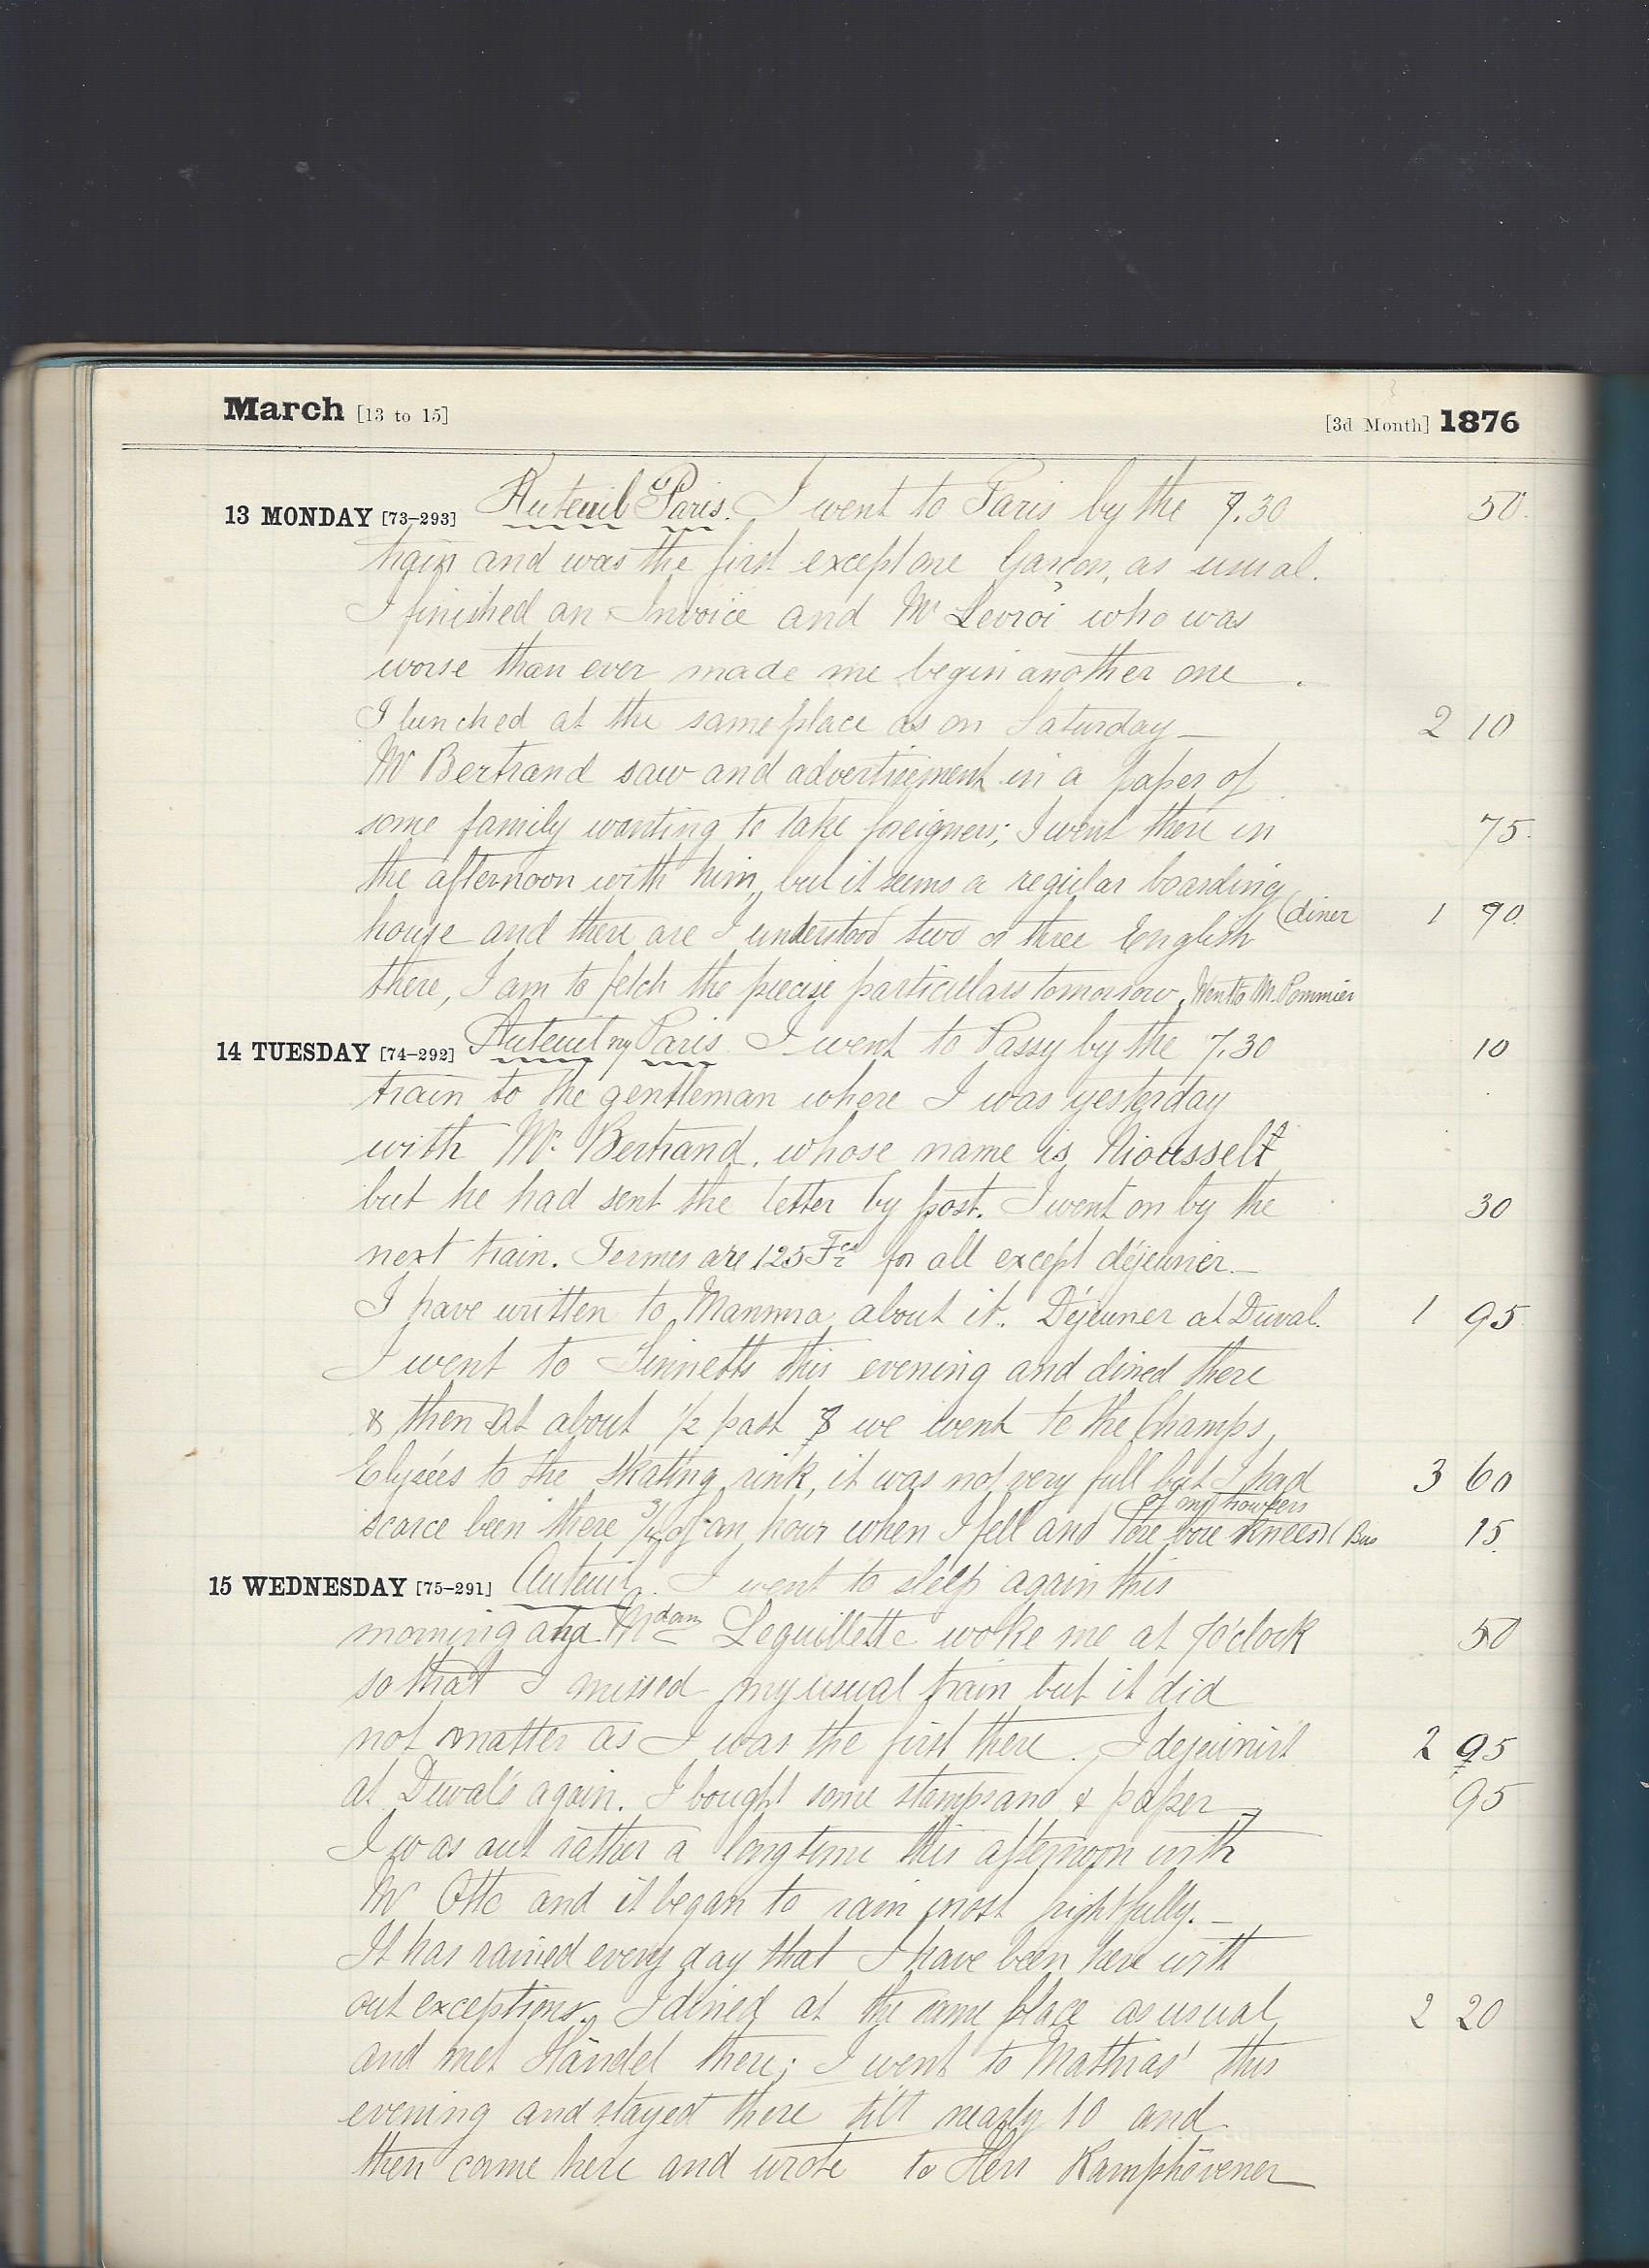 March [13 to 15] [3d Month] 1876
13 MONDAY [73-293] Auteuil Paris. I went to Paris by the 7.30 50.
train and was the first except one Garçon, as usual.
I finished an Invoice and Mr Levroi who was
worse than ever made me begin another one .
I lunched at the same place as on Saturday — 2 10
Mr Bertrand saw and advertisement in a paper of
some family wanting to take foreigners; I went there in 75.
the afternoon with him, but it seems a regular boarding
house and there are I understood two or three English (diner 1 90.
there, I am to fetch the precise particulars tomorrow. Went to M. Pommier
14 TUESDAY [74-292] Auteuil Paris I went to Passy by the 7.30 10
train to the gentleman where I was yesterday
with Mr. Bertrand. whose name is Niousselt
but he had sent the letter by post. I went on by the 30
next train. Termes are 125 Fcs for all except déjeuner.—
I have written to Mamma about it. Déjeuner at Duval. 1 95
I went to Sinnetts this evening and dined there
& then at about 1/2 past 8 we went to the Champs
Elysées to the skating rink, it was not very full but I had 3 60
of my trowsers
scarce been there 3/4 of an hour when I fell and tore knees (Bus 15.
15 WEDNESDAY [75-291] Auteuil. I went to sleep again this
morning and Mdam Leguillette woke me at 7o'clock 50
so that I missed my usual train but it did
not matter as I was the first there. I dejeunirt 2 95
at Duval's again. I bought some stamps and & paper 95
I was out rather a long time this afternoon with
Mr Otto and it began to rain most frightfully. —
It has rained every day that I have been here with
out exceptions. I dined at the same place as usual 2 20
and met Händel there; I went to Mathias' this
evening and stayed there till nearly 10 and
then came here and wrote to Herr Kamphövener